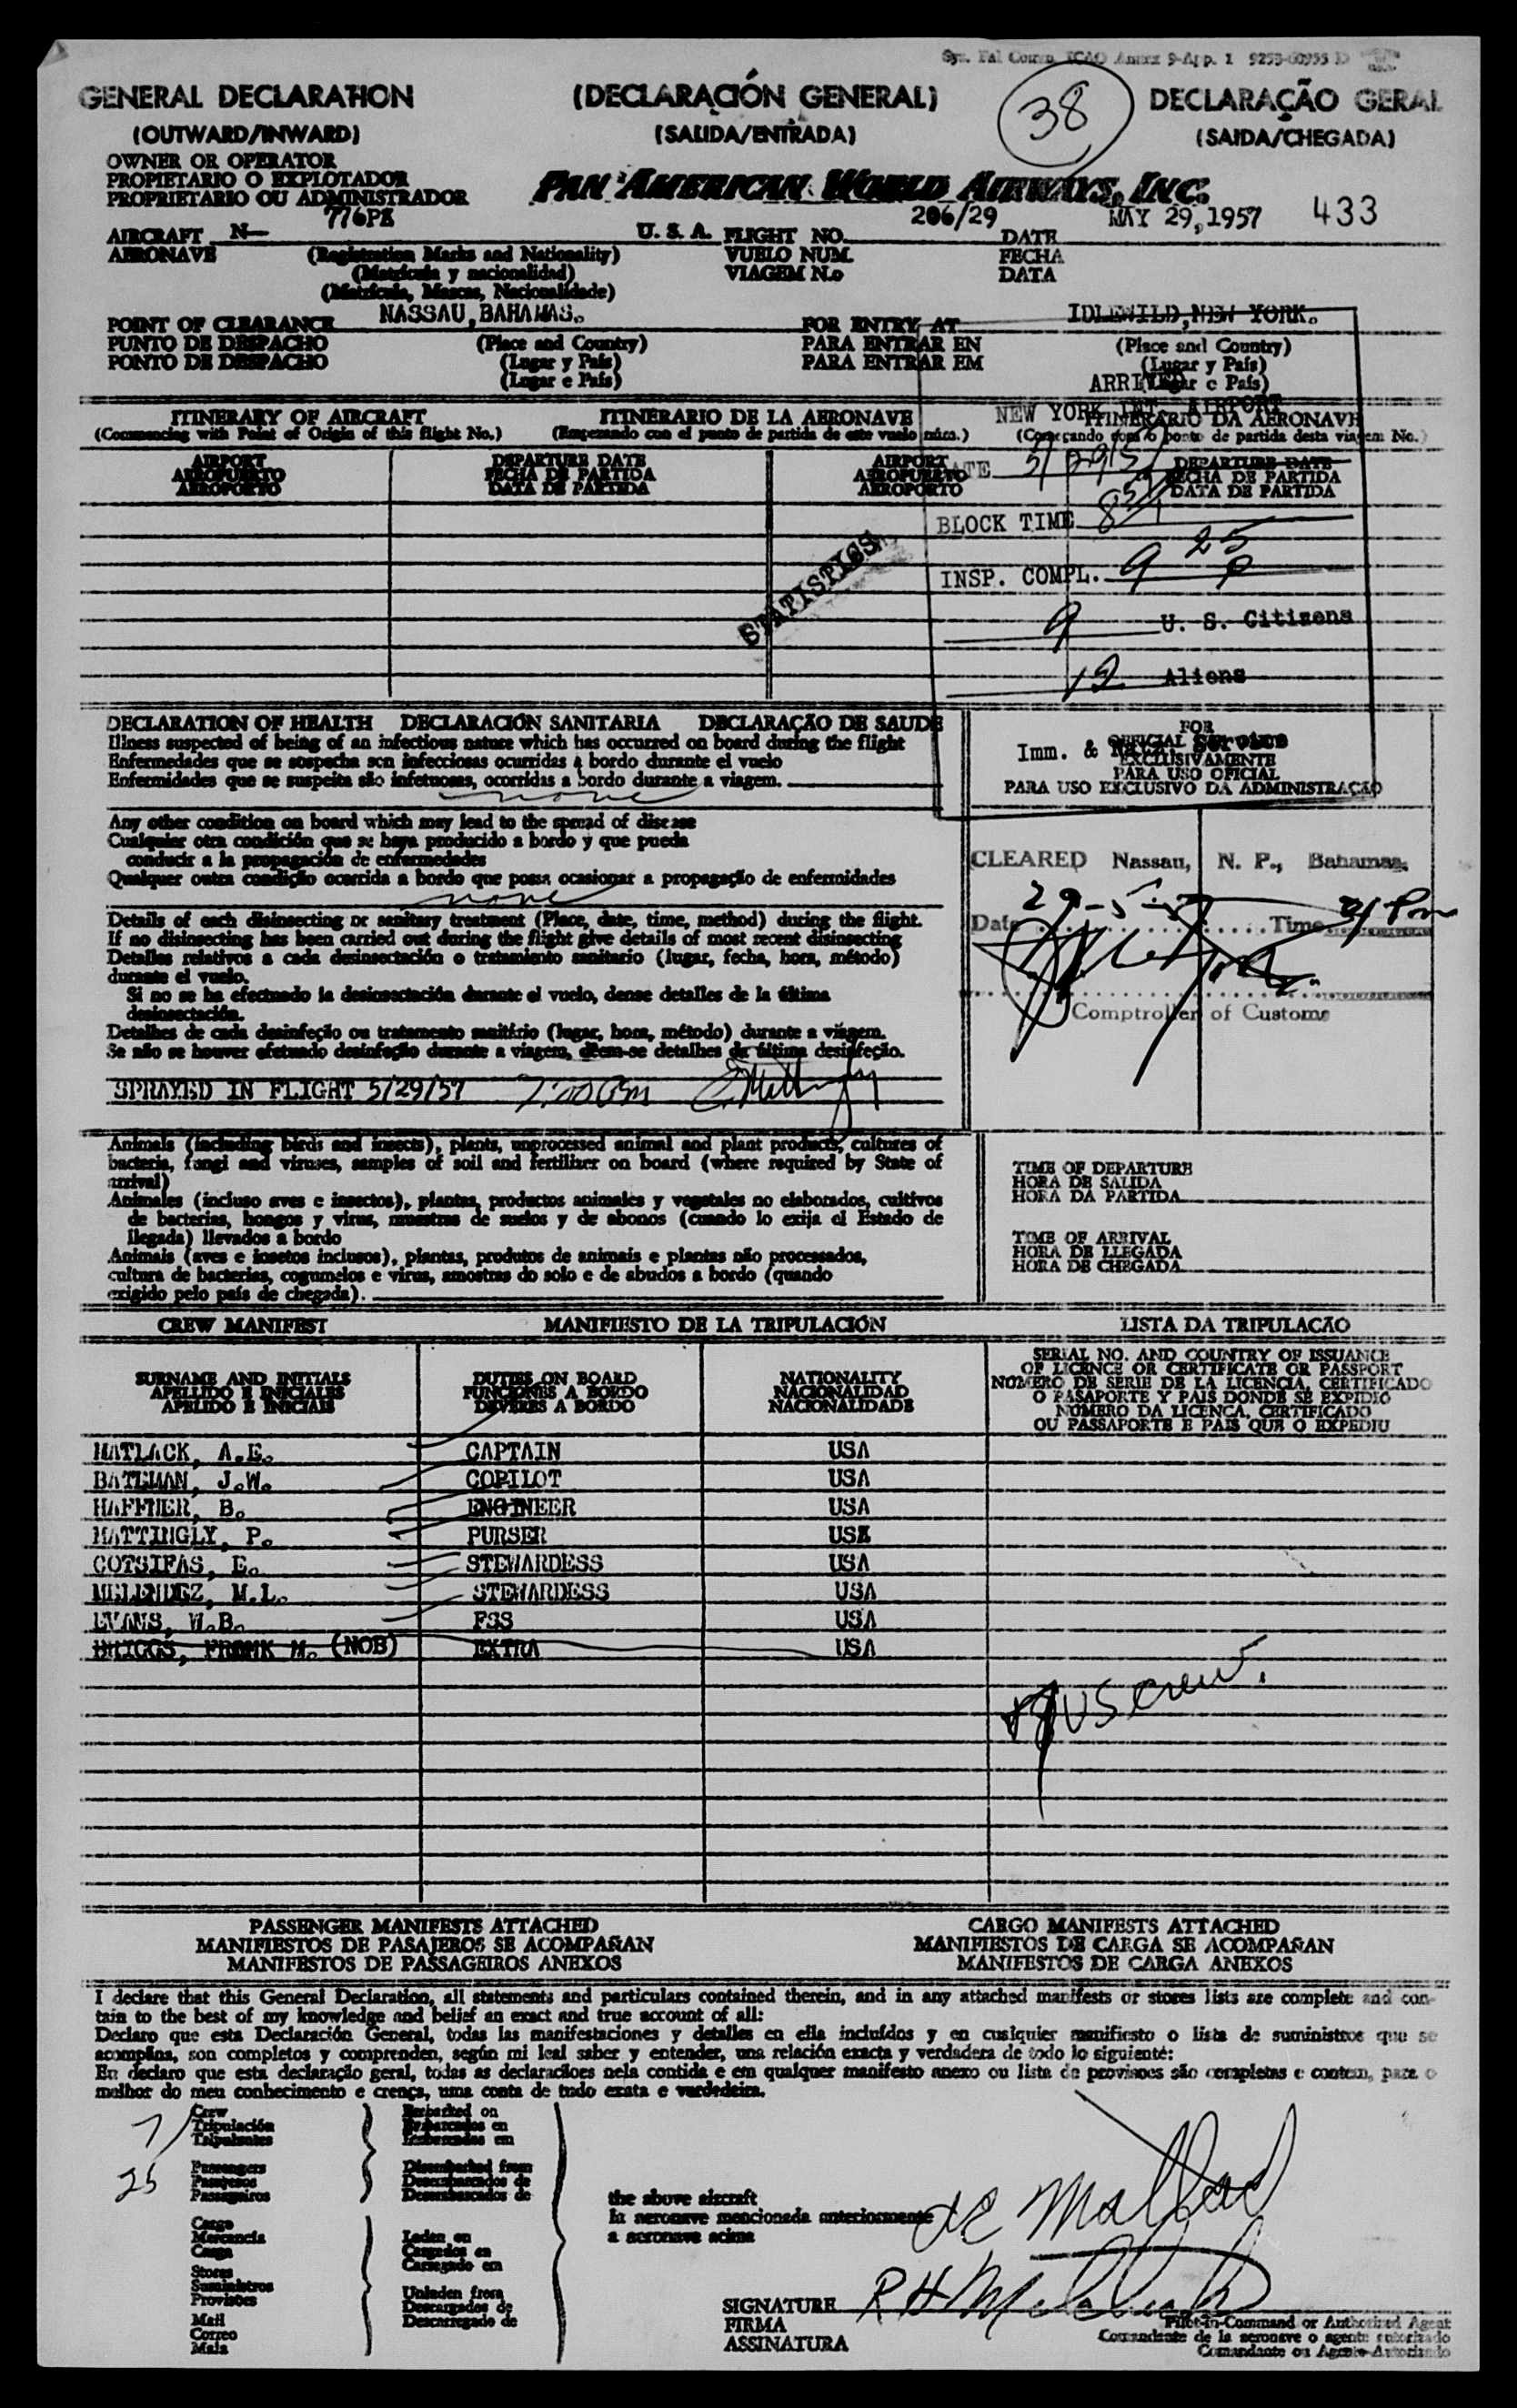 GENERAL DECLARATION (DECLARACIÓN GENERAL) 38 DECLARAÇÃO GERAL
(OUTWARD/INWARD) (SALIDA/ENTRADA) (SAIDA/CHEGADA)
OWNER OR OPERATOR
PROPIETARIO O EXPLOTADOR
PROPRIETARIO OU ADMINISTRADOR
PAN AMERICAN WORLD AIRWAYS, INC.
AIRCRAFT N- 776PZ U. S. A. FLIGHT NO. 206/29 DATE MAY 29, 1957 433
AERONAVE (Registration Marks and Nationality) VUELO NUM. FECHA
(Matrícula y nacionalidad) VIAGEM N.o DATA
(Matrícula, Marcas, Nacionalidade)
POINT OF CLEARANCE NASSAU, BAHAMAS. FOR ENTRY AT IDLEWILD, NEW YORK.
PUNTO DE DESPACHO (Place and Country) PARA ENTRAR EN (Place and Country)
PONTO DE DESPACHO (Lugar y País) PARA ENTRAR EM (Lugar y País)
(Lugar e País) ARRIVED (Lugar e País)
NEW YORK INT. AIRPORT
ITINERARY OF AIRCRAFT ITINERARIO DE LA AERONAVE ITINERARIO DA AERONAVE
(Commencing with Point of Origin of this flight No.) (Empezando con el punto de partida de este vuelo núm.) (Começando com o ponto de partida desta viagem No.)
AIRPORT DEPARTURE DATE AIRPORT DATE 5/29/57 DEPARTURE DATE
AEROPUERTO FECHA DE PARTIDA AEROPUERTO FECHA DE PARTIDA
AEROPORTO DATA DE PARTIDA AEROPORTO DATA DE PARTIDA
BLOCK TIME
STATISTICS
INSP. COMPL. 9 25 P
9 U. S. Citizens
12 Aliens
DECLARATION OF HEALTH DECLARACIÓN SANITARIA DECLARAÇÃO DE SAUDE
Illness suspected of being of an infectious nature which has occurred on board during the flight
Enfermedades que se sospecha son infecciosas ocurridas a bordo durante el vuelo
Enfermidades que se suspeita são infetuosas, ocorridas a bordo durante a viagem.
none
FOR
OFFICIAL USE
Imm. & Natz. Service
EXCLUSIVAMENTE
PARA USO OFICIAL
PARA USO EXCLUSIVO DA ADMINISTRAÇÃO
Any other condition on board which may lead to the spread of disease
Cualquier otra condición que se haya producido a bordo y que pueda
conducir a la propagación de enfermedades
Qualquer outra condição ocorrida a bordo que possa ocasionar a propagação de enfermidades
none
CLEARED Nassau, N. P., Bahamas.
Date 29-5-57 Time
Comptroller of Customs
Details of each disinsecting or sanitary treatment (Place, date, time, method) during the flight.
If no disinsecting has been carried out during the flight give details of most recent disinsecting
Detalles relativos a cada desinsectación o tratamiento sanitario (lugar, fecha, hora, método)
durante el vuelo.
Si no se ha efectuado la desinsectación durante el vuelo, dense detalles de la última
desinsectación.
Detalhes de cada desinfeção ou tratamento sanitário (lugar, hora, método) durante a viagem.
Se não se houver efetuado desinfeção durante a viagem, dêem-se detalhes da última desinfeção.
SPRAYED IN FLIGHT 5/29/57 7:00 Pm
Animals (including birds and insects), plants, unprocessed animal and plant products, cultures of
bacteria, fungi and viruses, samples of soil and fertilizer on board (where required by State of
arrival)
Animales (incluso aves e insectos), plantas, productos animales y vegetales no elaborados, cultivos
de bacterias, hongos y virus, muestras de suelos y de abonos (cuando lo exija el Estado de
llegada) llevados a bordo
Animais (aves e insetos inclusos), plantas, produtos de animais e plantas não processados,
cultura de bacterias, cogumelos e virus, amostras do solo e de abudos a bordo (quando
exigido pelo país de chegada).
TIME OF DEPARTURE
HORA DE SALIDA
HORA DA PARTIDA
TIME OF ARRIVAL
HORA DE LLEGADA
HORA DE CHEGADA
CREW MANIFEST MANIFIESTO DE LA TRIPULACIÓN LISTA DA TRIPULACÃO
SURNAME AND INITIALS DUTIES ON BOARD NATIONALITY SERIAL NO. AND COUNTRY OF ISSUANCE
APELLIDO E INICIALES FUNCIONES A BORDO NACIONALIDAD OF LICENCE OR CERTIFICATE OR PASSPORT
APELIDO E INICIAIS DEVERES A BORDO NACIONALIDADE NÚMERO DE SERIE DE LA LICENCIA, CERTIFICADO
O PASAPORTE Y PAIS DONDE SE EXPIDIÓ
NÚMERO DA LICENCA, CERTIFICADO
OU PASSAPORTE E PAIS QUE O EXPEDIU
MATLACK, A.E. CAPTAIN USA
BATEMAN, J.W. COPILOT USA
HAFFNER, B. ENGINEER USA
MATTINGLY, P. PURSER USA
COTSIFAS, E. STEWARDESS USA
MELENDEZ, M.L. STEWARDESS USA
EVANS, W.B. FSS USA
BRIGGS, FRANK M. (NOB) EXTRA USA
US crew.
PASSENGER MANIFESTS ATTACHED CARGO MANIFESTS ATTACHED
MANIFIESTOS DE PASAJEROS SE ACOMPAÑAN MANIFIESTOS DE CARGA SE ACOMPAÑAN
MANIFESTOS DE PASSAGEIROS ANEXOS MANIFESTOS DE CARGA ANEXOS
I declare that this General Declaration, all statements and particulars contained therein, and in any attached manifests or stores lists are complete and con-
tain to the best of my knowledge and belief an exact and true account of all:
Declaro que esta Declaración General, todas las manifestaciones y detalles en ella incluídos y en cualquier manifiesto o lista de suministros que se
acompãna, son completos y comprenden, según mi leal saber y entender, una relación exacta y verdadera de todo lo siguiente:
En declaro que esta declaração geral, todas as declarações nela contida e em qualquer manifesto anexo ou lista de provisoes são completas e contem, para o
melhor do meu conhecimento e crença, uma conta de tudo exata e verdadeira.
7 Crew Embarked on
Tripulación Embarcados en
Tripulantes Embarcados em
25 Passengers Disembarked from
Pasajeros Desembarcados de
Passageiros Desembarcados de
the above aircraft
la aeronave mencionada anteriormente
a aeronave acima
Cargo Laden on
Mercancia Cargados en
Carga Carregado em
Stores Unladen from
Suministros Descargados de
Provisões Descarregado de
Mail
Correo
Mala
SIGNATURE
FIRMA
ASSINATURA
Pilot-in-Command or Authorized Agent
Comandante de la aeronave o agente autorizado
Comandante ou Agente Autorizado